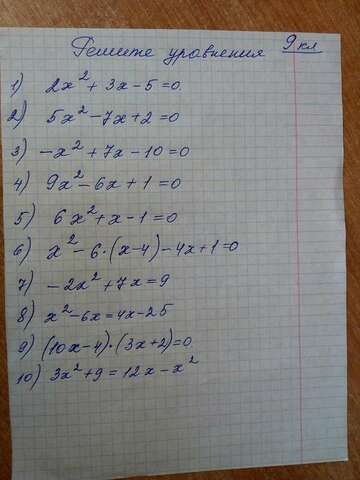 Решите уравнения 9 кл
1) 2x² + 3x - 5 = 0
2) 5x² - 7x + 2 = 0
3) -x² + 7x - 10 = 0
4) 9x² - 6x + 1 = 0
5) 6x² + x - 1 = 0
6) x² - 6·(x-4) - 4x + 1 = 0
7) -2x² + 7x = 9
8) x² - 6x = 4x - 25
9) (10x - 4)·(3x + 2) = 0
10) 3x² + 9 = 12x - x²